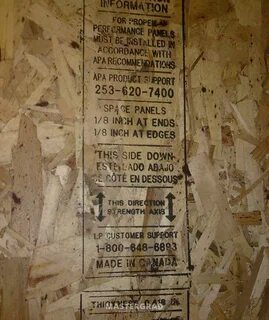 INFORMATION
FOR PROPER AN
PERFORMANCE PANELS
MUST BE INSTALLED IN
ACCORDANCE WITH
APA RECOMMENDATIONS
APA PRODUCT SUPPORT
253-620-7400
SPACE PANELS
1/8 INCH AT ENDS
1/8 INCH AT EDGES
THIS SIDE DOWN
ESTE LADO ABAJO
DE CÔTÉ EN DESSOUS
THIS DIRECTION
STRENGTH AXIS
LP CUSTOMER SUPPORT
1-800-648-6893
MADE IN CANADA
THICKNESS 0.418 IN
MASTERGRAD